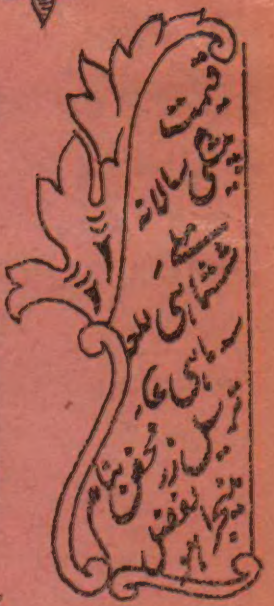 قیمت
پیشگی سالانہ
ششماہی
سہ ماہی
ترسیل زر محض بنام
منیجر الفضل ہو